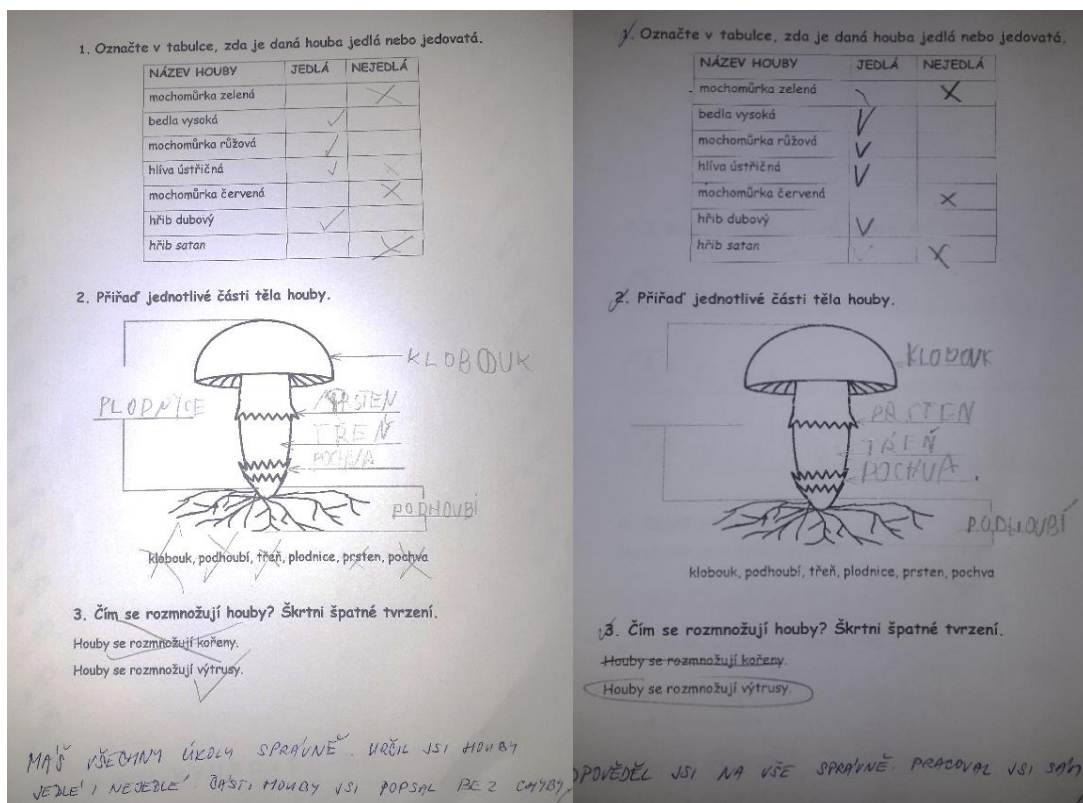 1. Označte v tabulce, zda je daná houba jedlá nebo jedovatá.
NÁZEV HOUBY JEDLÁ NEJEDLÁ
mochomůrka zelená
bedla vysoká
mochomůrka růžová
hlíva ústřičná
mochomůrka červená
hřib dubový
hřib satan
2. Přiřaď jednotlivé části těla houby.
KLOBOUK
PLODNICE
PRSTEN
TŘEŇ
POCHVA
PODHOUBÍ
klobouk, podhoubí, třeň, plodnice, prsten, pochva
3. Čím se rozmnožují houby? Škrtni špatné tvrzení.
Houby se rozmnožují kořeny.
Houby se rozmnožují výtrusy.
MÁŠ VŠECHNY ÚKOLY SPRÁVNĚ. URČIL JSI HOUBY
JEDLÉ I NEJEDLÉ. ČÁSTI HOUBY JSI POPSAL BEZ CHYBY
1. Označte v tabulce, zda je daná houba jedlá nebo jedovatá.
NÁZEV HOUBY JEDLÁ NEJEDLÁ
mochomůrka zelená
bedla vysoká
mochomůrka růžová
hlíva ústřičná
mochomůrka červená
hřib dubový
hřib satan
2. Přiřaď jednotlivé části těla houby.
KLOBOUK
PRSTEN
TŘEŇ
POCHVA
PODHOUBÍ
klobouk, podhoubí, třeň, plodnice, prsten, pochva
3. Čím se rozmnožují houby? Škrtni špatné tvrzení.
Houby se rozmnožují kořeny.
Houby se rozmnožují výtrusy.
ODPOVĚDĚL JSI NA VŠE SPRÁVNĚ. PRACOVAL JSI SÁM